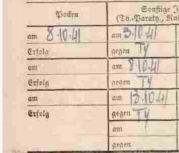 Pocken
Sonstige J
(Th.-Paraty., Ru
am 8.10.41 am 3.10.41
Erfolg gegen TY
am am 8.10.41
Erfolg gegen TY
am am 13.10.41
Erfolg gegen TY
am
gegen